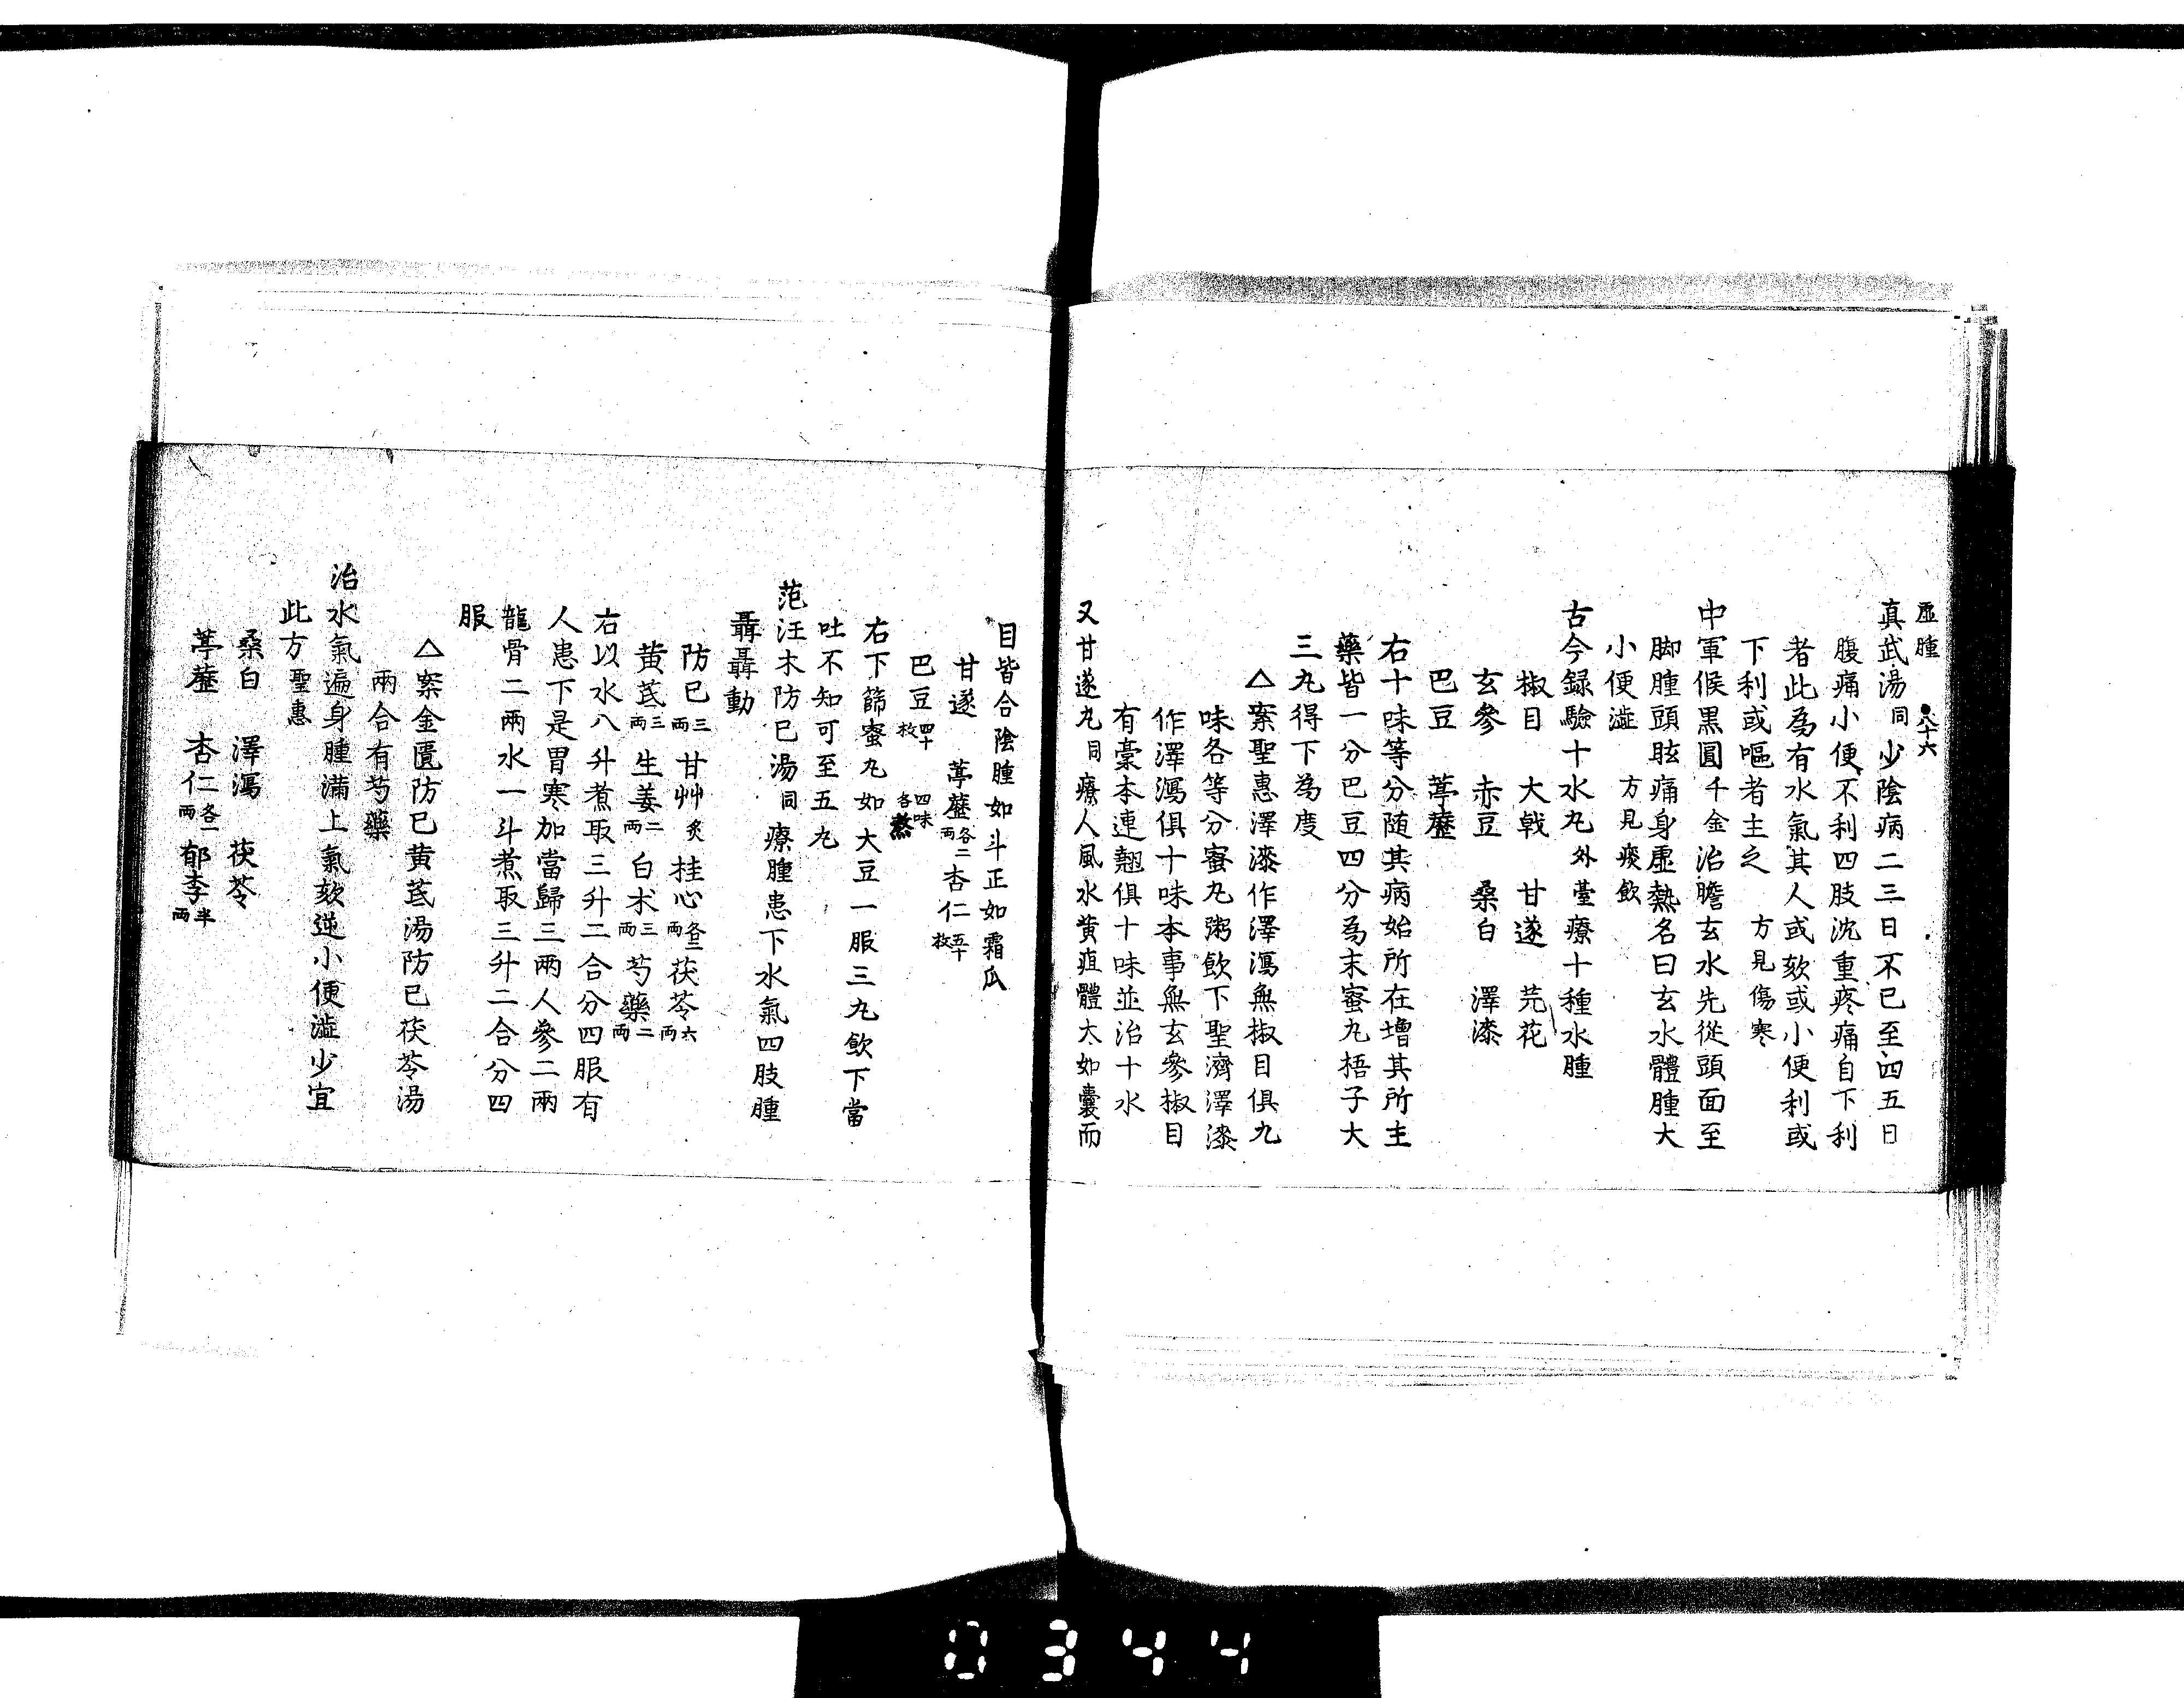 虚腫 八十六
真武湯同少陰病二三日不已至四五日
腹痛小便不利四肢沈重疼痛自下利
者此為有水氣其人或欬或小便利或
下利或嘔者主之 方見傷寒
中軍候黒圓千金治膽玄水先從頭面至
脚腫頭眩痛身虚熱名曰玄水體腫大
小便澁 方見痰飲
古今録驗十水丸外臺療十種水腫
椒目 大戟 甘遂 芫花
玄參 赤豆 桑白 澤漆
巴豆 葶藶
右十味等分随其病始所在増其所主
藥皆一分巴豆四分為末蜜丸梧子大
三丸得下為度
△案聖惠澤漆作澤瀉無椒目俱九
味各等分蜜丸粥飲下聖濟澤漆
作澤瀉俱十味本事無玄參椒目
有藁本連翹俱十味並治十水
又甘遂丸同療人風水黄疸體大如囊而
目皆合陰腫如斗正如霜瓜
甘遂 葶藶各二兩 杏仁五十枚
巴豆四十枚 四味各熬
右下篩蜜丸如大豆一服三丸飲下當
吐不知可至五丸
范汪木防已湯同療腫患下水氣四肢腫
聶聶動
防已三兩 甘艸炙 桂心各二兩 茯苓六兩
黄芪三兩 生姜二兩 白朮三兩 芍藥二兩
右以水八升煮取三升二合分四服有
人患下是胃寒加當歸三兩人參二兩
龍骨二兩水一斗煮取三升二合分四
服
△案金匱防已黄芪湯防已茯苓湯
兩合有芍藥
治水氣遍身腫滿上氣欬逆小便澁少宜
此方聖惠
桑白 澤瀉 茯苓
葶藶 杏仁各一兩 郁李半兩
0344